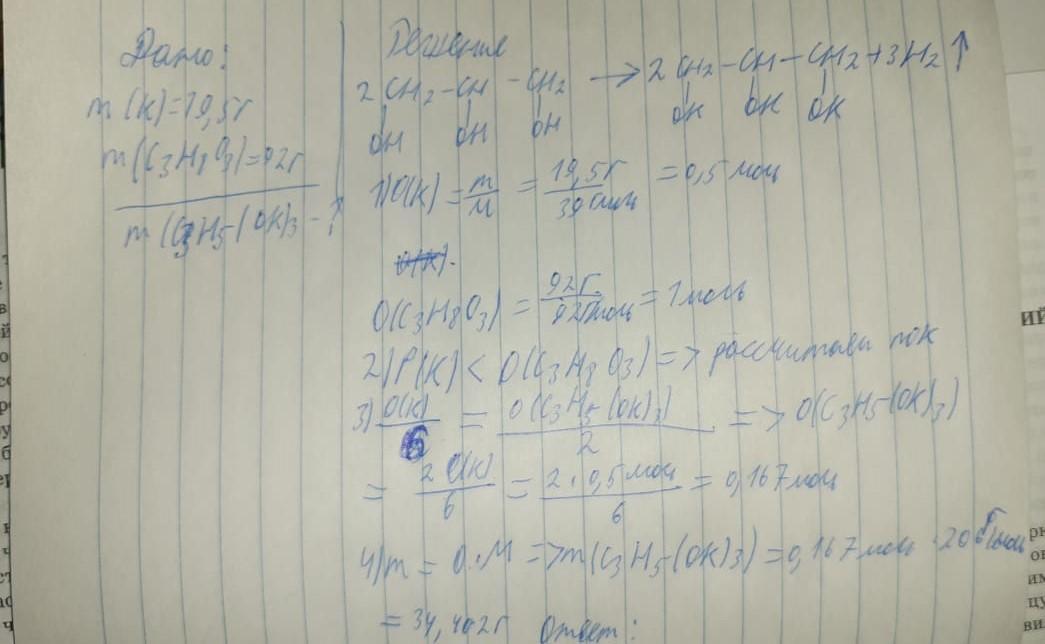 Дано:
m(K)=19,5г
m(C3H8O3)=92г
m(C3H5-(OK)3-?
Решение
2CH2-CH-CH2 → 2CH2-CH-CH2+3H2↑
OH OH OH OK OK OK
1)υ(K)=m/M=19,5г/39г/моль=0,5 моль
υ(K).
υ(C3H8O3)=92г/92г/моль=1моль
2)υ(K)<υ(C3H8O3)=> рассчитываем по K
3)υ(K)/6=υ(C3H5-(OK)3)/2=>υ(C3H5-(OK)3)
=2υ(K)/6=2·0,5моль/6=0,167моль
4)m=υ·M=>m(C3H5-(OK)3)=0,167моль·206г/моль
=34,402г Ответ: